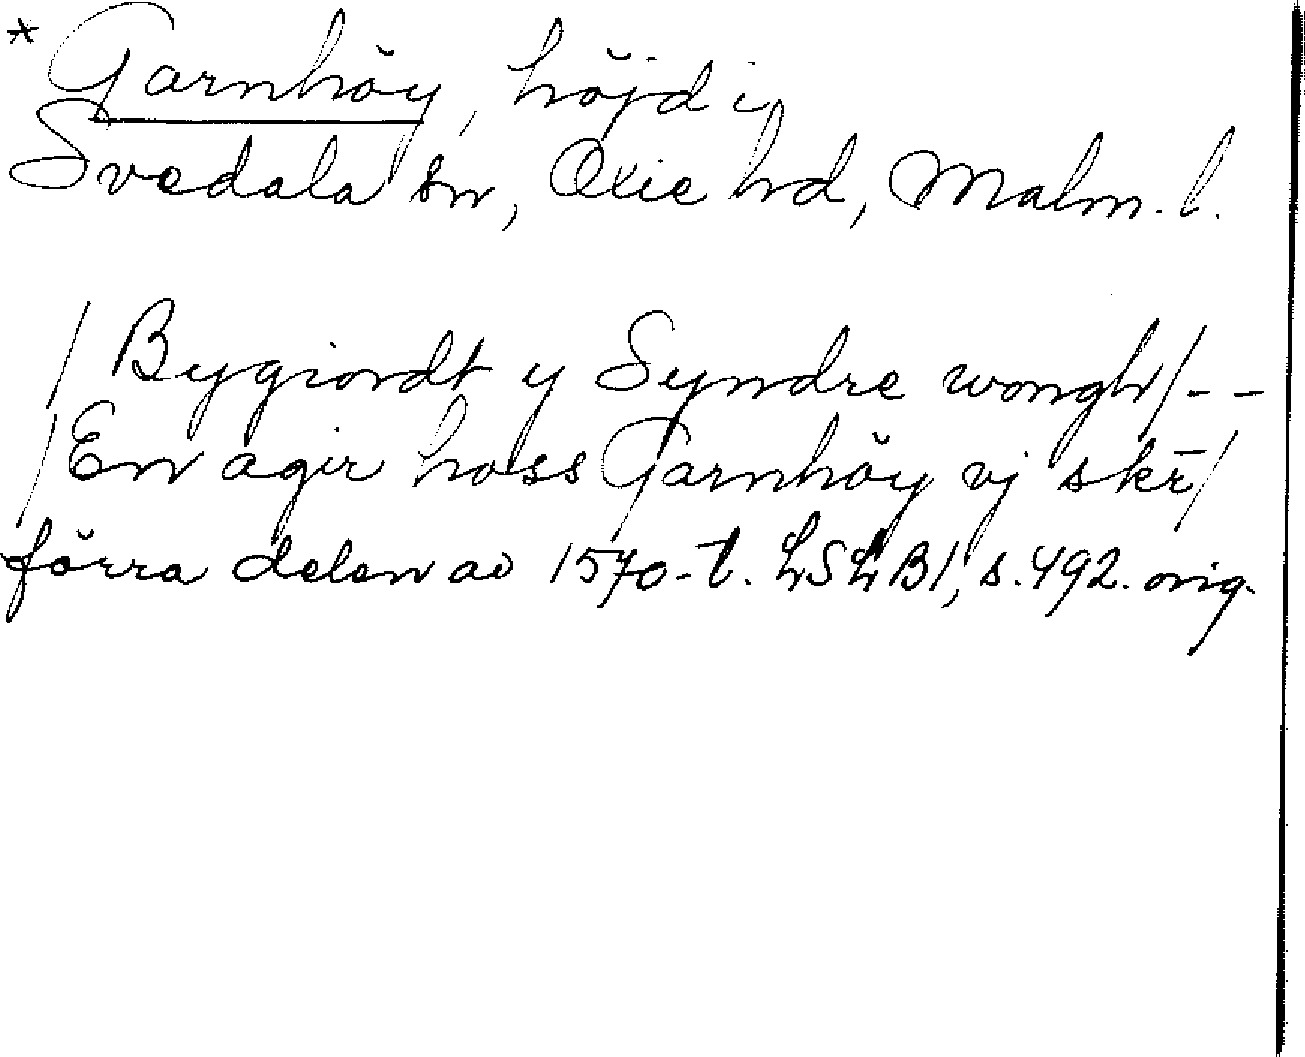 * Garnhöy, höjd i
Svedala sn, Oxie hd, Malm. l.
/Bygiordt y Syndre wongh/--
/En agir hoss Garnhöy vj skr̄/
förra delen av 1570-t. LSLB1, s. 492. orig.